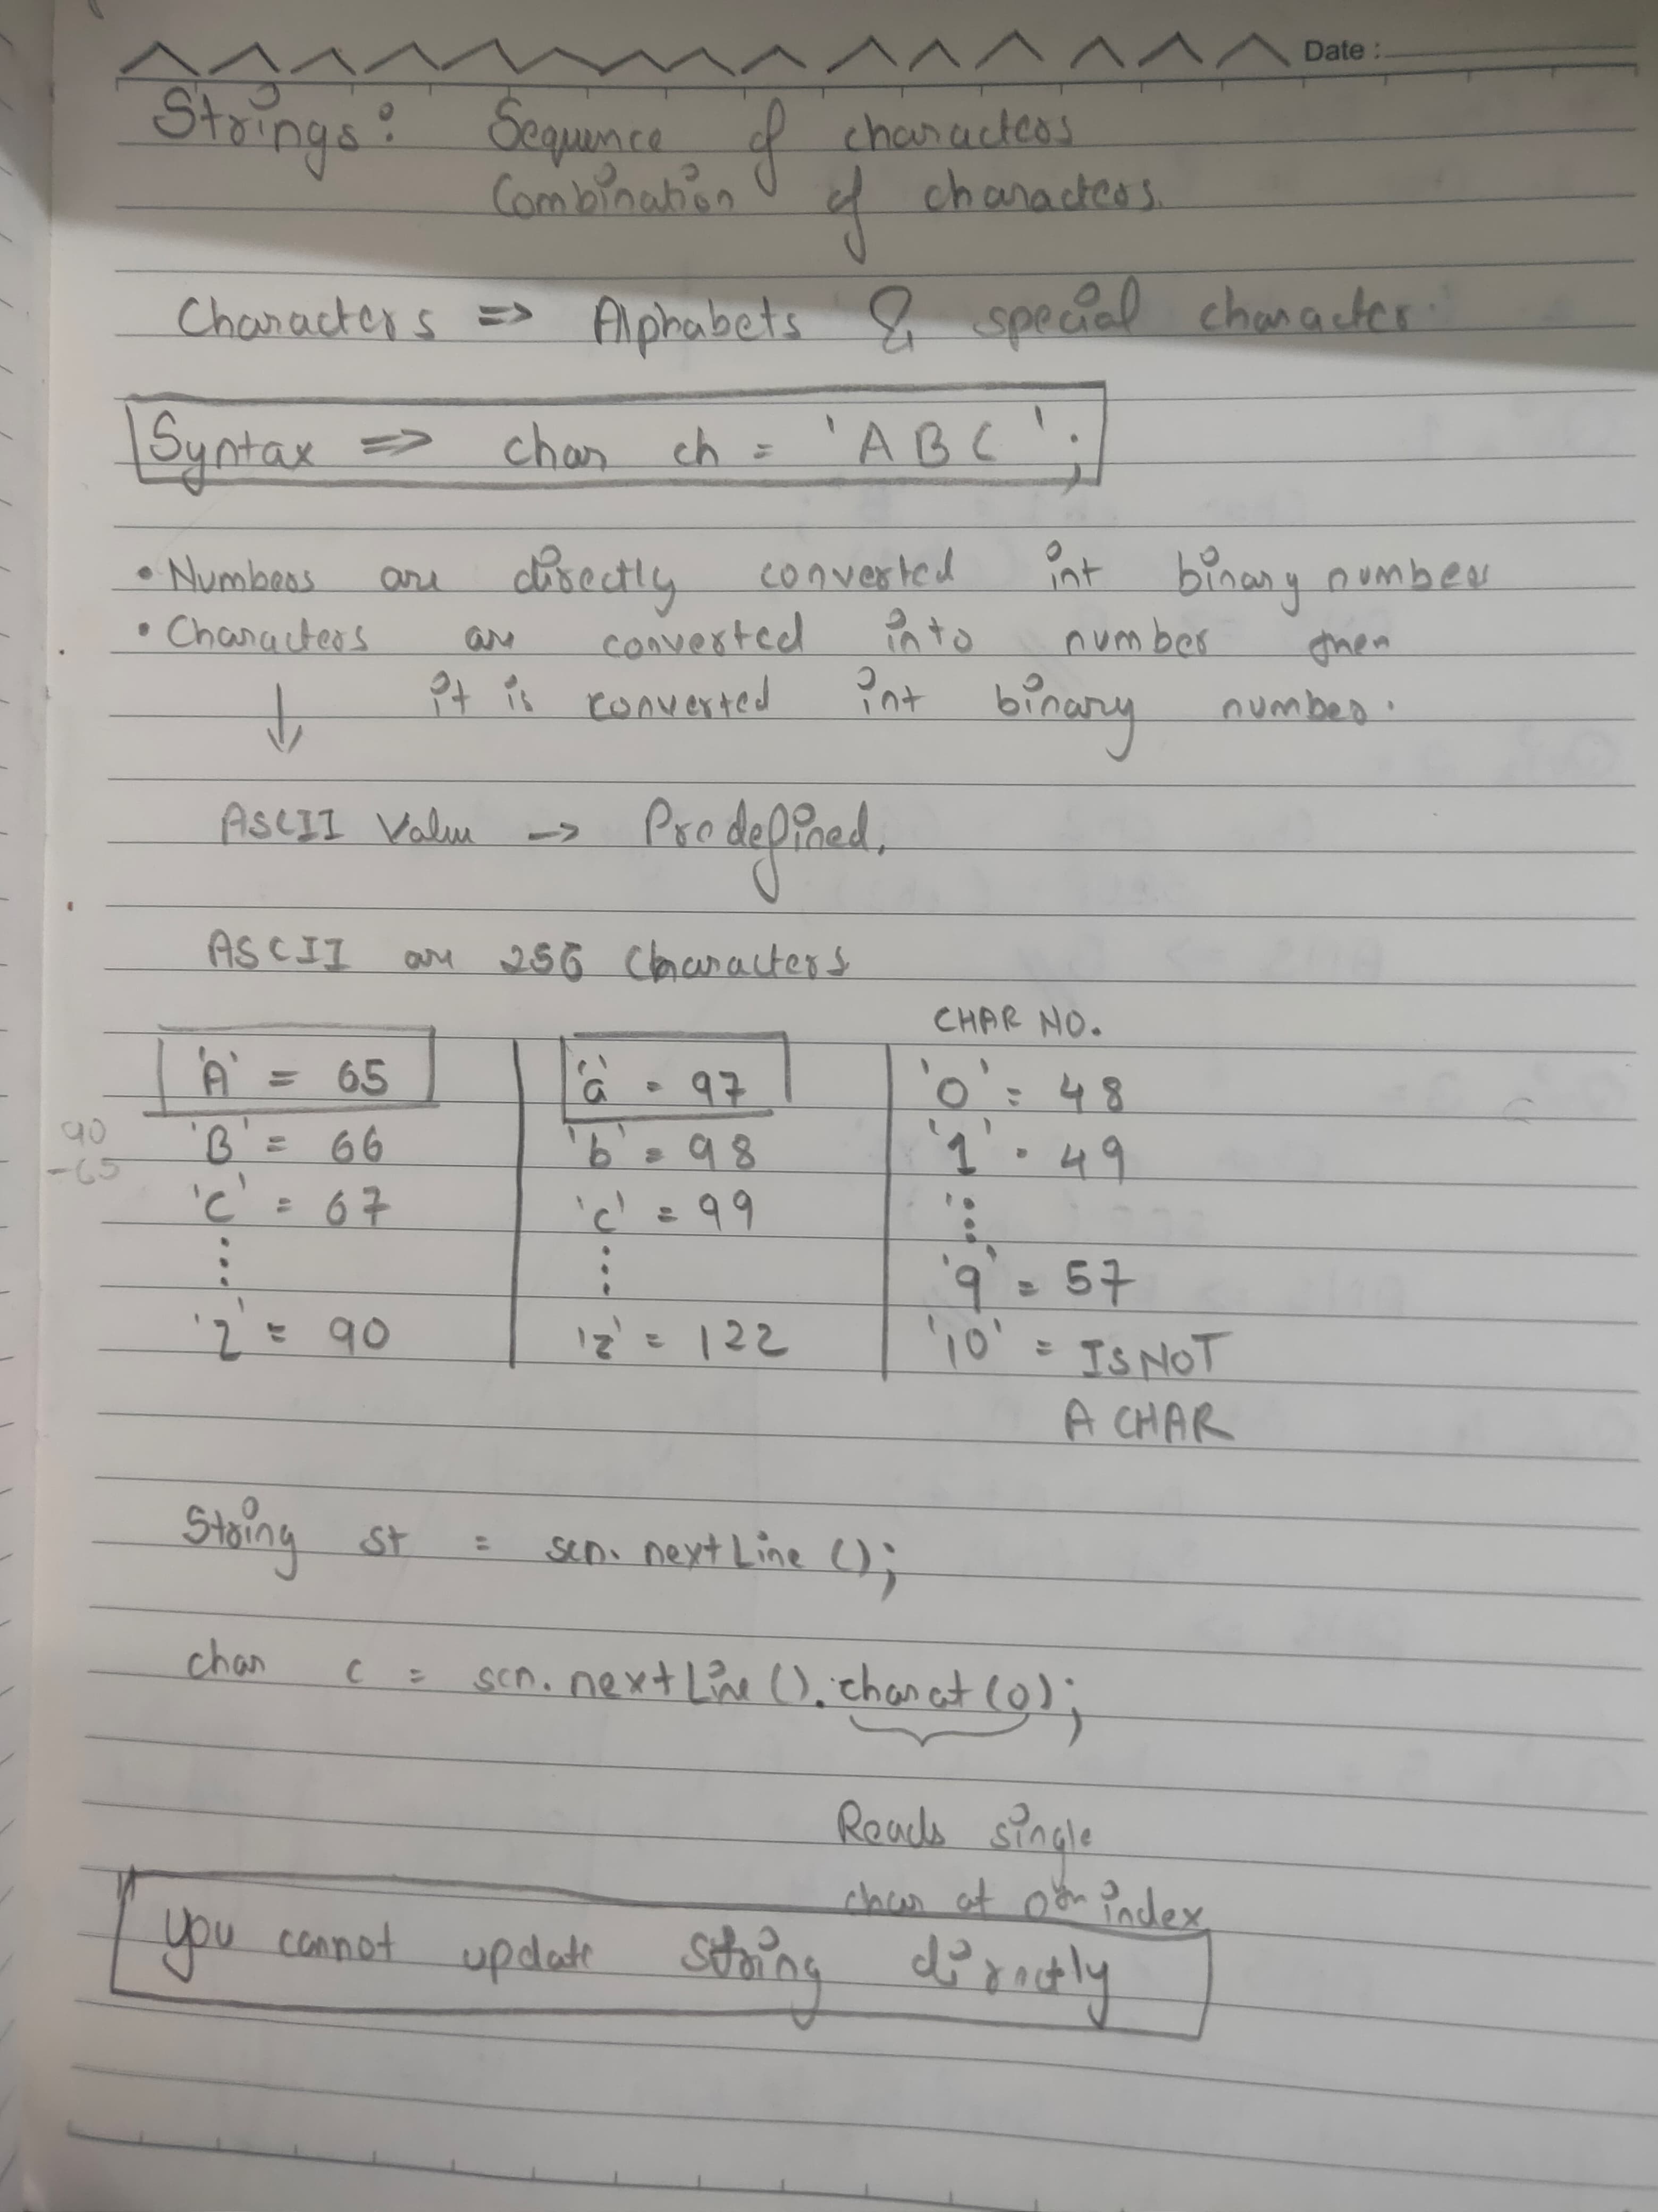 Date :
Strings: Sequence of characters
Combination of characters.
Characters => Alphabets & special character.
Syntax => char ch = 'ABC';
• Numbers are directly converted int binary number
• Characters are converted into number then
it is converted int binary number.
↓
ASCII Value -> Predefined.
ASCII are 256 Characters
CHAR NO.
'A' = 65 'a' = 97 '0' = 48
90
'B' = 66 'b' = 98 '1' = 49
-65
'C' = 67 'c' = 99 ⋮
⋮ ⋮ '9' = 57
'Z' = 90 'z' = 122 '10' = IS NOT
A CHAR
String st = scn.nextLine();
char c = scn.nextLine().charat(0);
Reads single
char at 0th index
you cannot update string directly